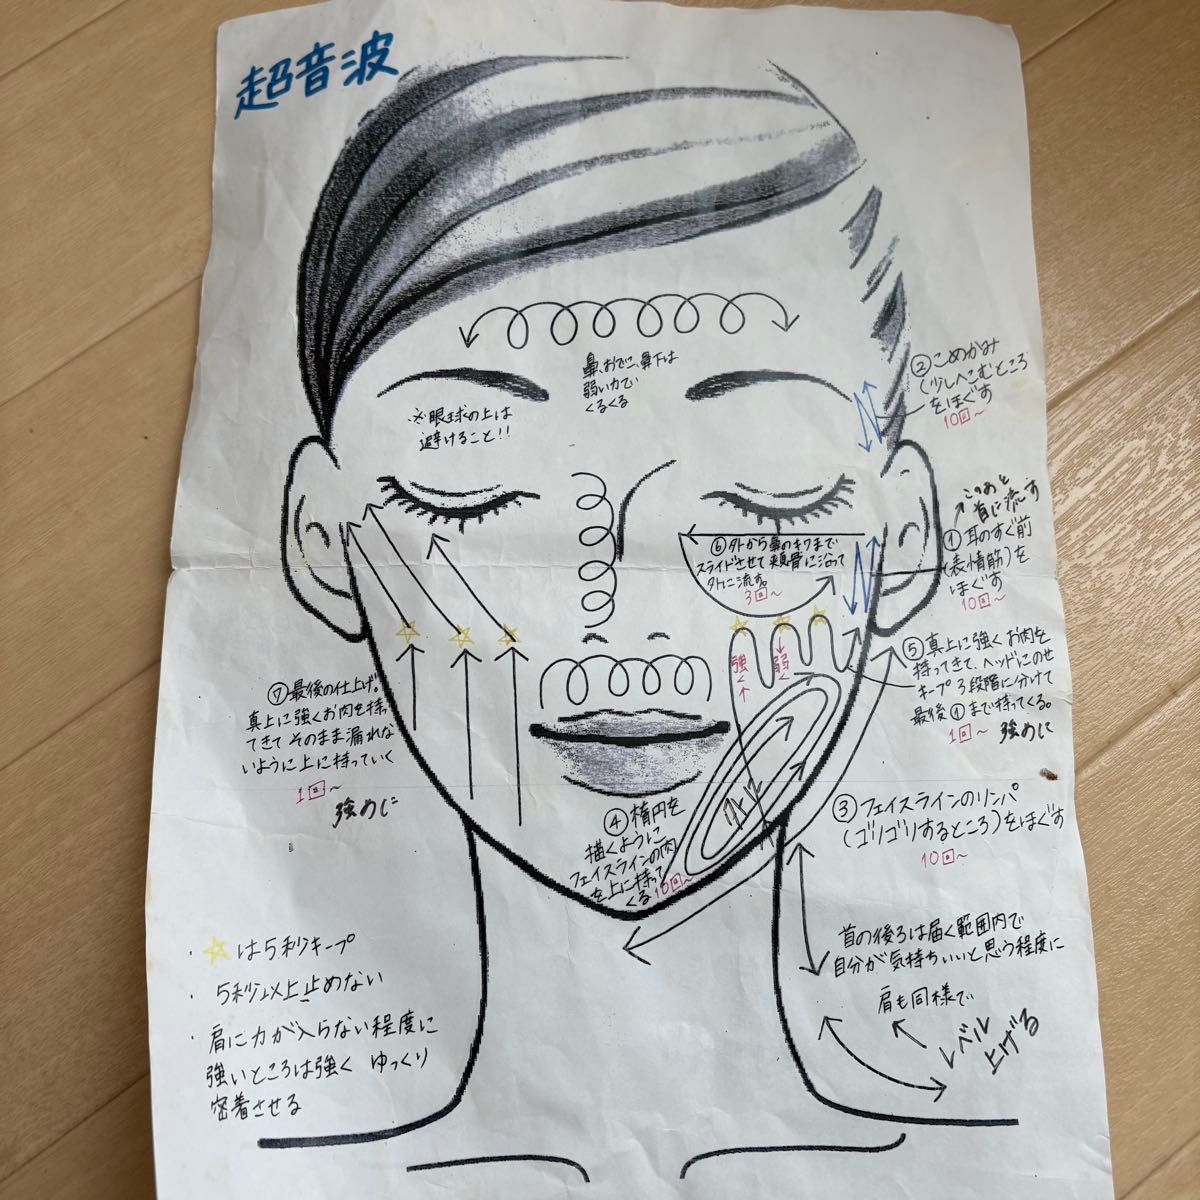 超音波
鼻、おでこ、鼻下は
弱い力で
くるくる
※眼球の上は
避けること!!
②こめかみ
(少しへこむところ
をほぐす
10回〜
このあと
首に流す
①耳のすぐ前
(表情筋)を
ほぐす
10回〜
⑥外から鼻のキワまで
スライドさせて頬骨に沿って
外に流す。
3回〜
強く
弱く
⑤真上に強くお肉を
持ってきて、ヘッドにのせ
キープ 3段階に分けて
最後①まで持ってくる。
1回〜 強めに
⑦最後の仕上げ。
真上に強くお肉を持っ
てきてそのまま漏れな
いように上に持っていく
1回〜
強めに
④楕円を
描くように
フェイスラインの肉
を上に持って
くる10回〜
③フェイスラインのリンパ
(ゴリゴリするところ)をほぐす
10回〜
首の後ろは届く範囲内で
自分が気持ちいいと思う程度に
肩も同様で
レベル
上げる
・☆は5秒キープ
・5秒以上止めない
・肩に力が入らない程度に
強いところは強く ゆっくり
密着させる